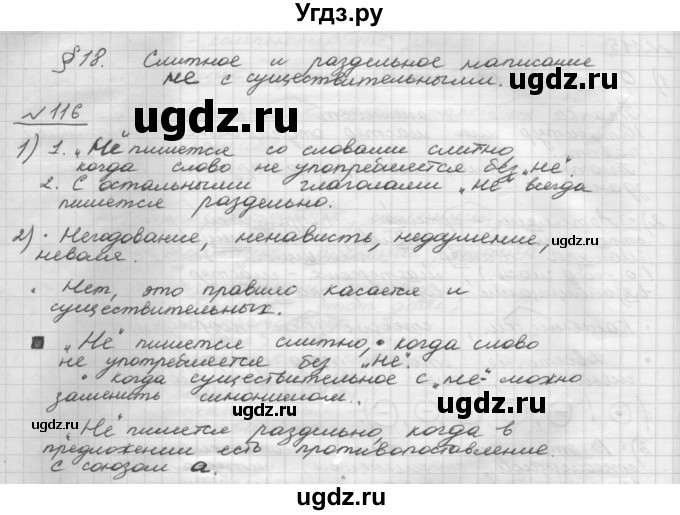 Угдз.ру
§18. Слитное и раздельное написание
не с существительными.
ugdz.ru
№116
ugdz.ru
1) 1. „Не" пишется со словами слитно,
когда слово не употребляется без „не".
2. С остальными глаголами „не" всегда
пишется раздельно.
ugdz.ru
2) • Негодование, ненависть, недоумение,
неволя.
ugdz.ru
• Нет, это правило касается и
существительных.
ugdz.ru
„Не" пишется слитно, • когда слово
не употребляется без „не".
• когда существительное с „не" можно
заменить синонимом.
ugdz.ru
ugdz.ru
„Не" пишется раздельно, когда в
предложении есть противопоставление
с союзом а.
ugdz.ru
ugdz.ru